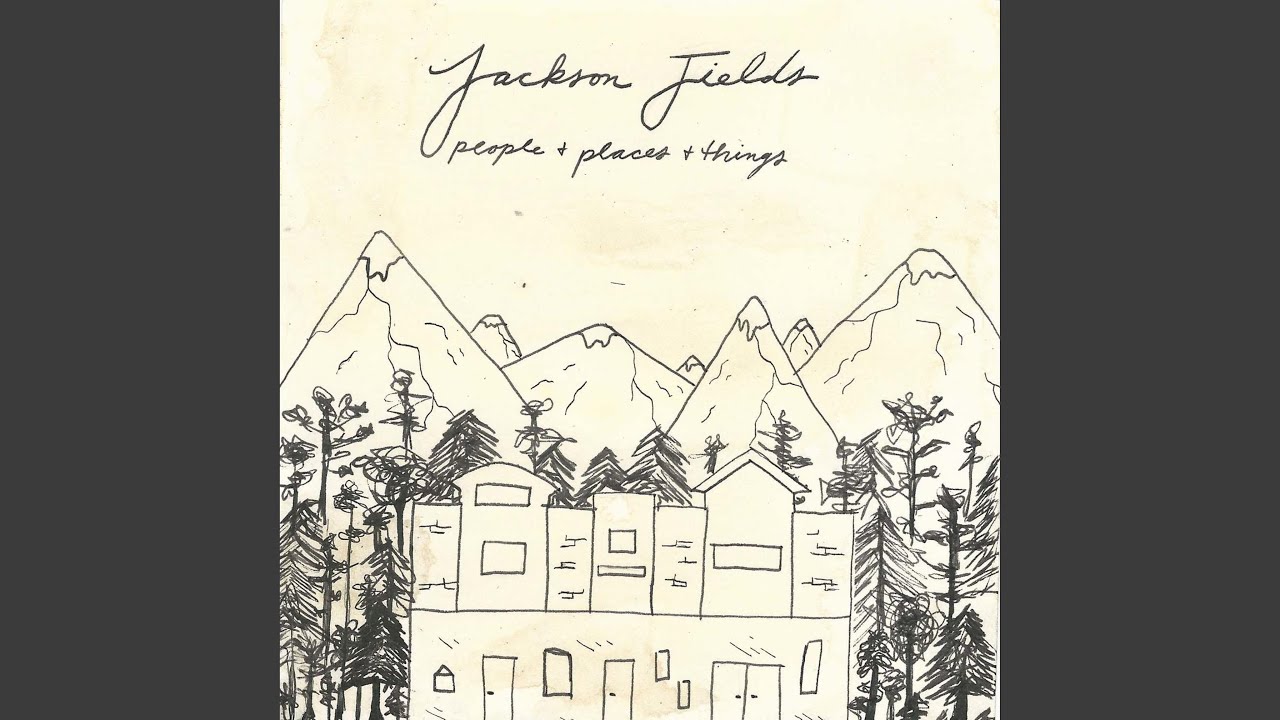 Jackson Fields
people + places + things